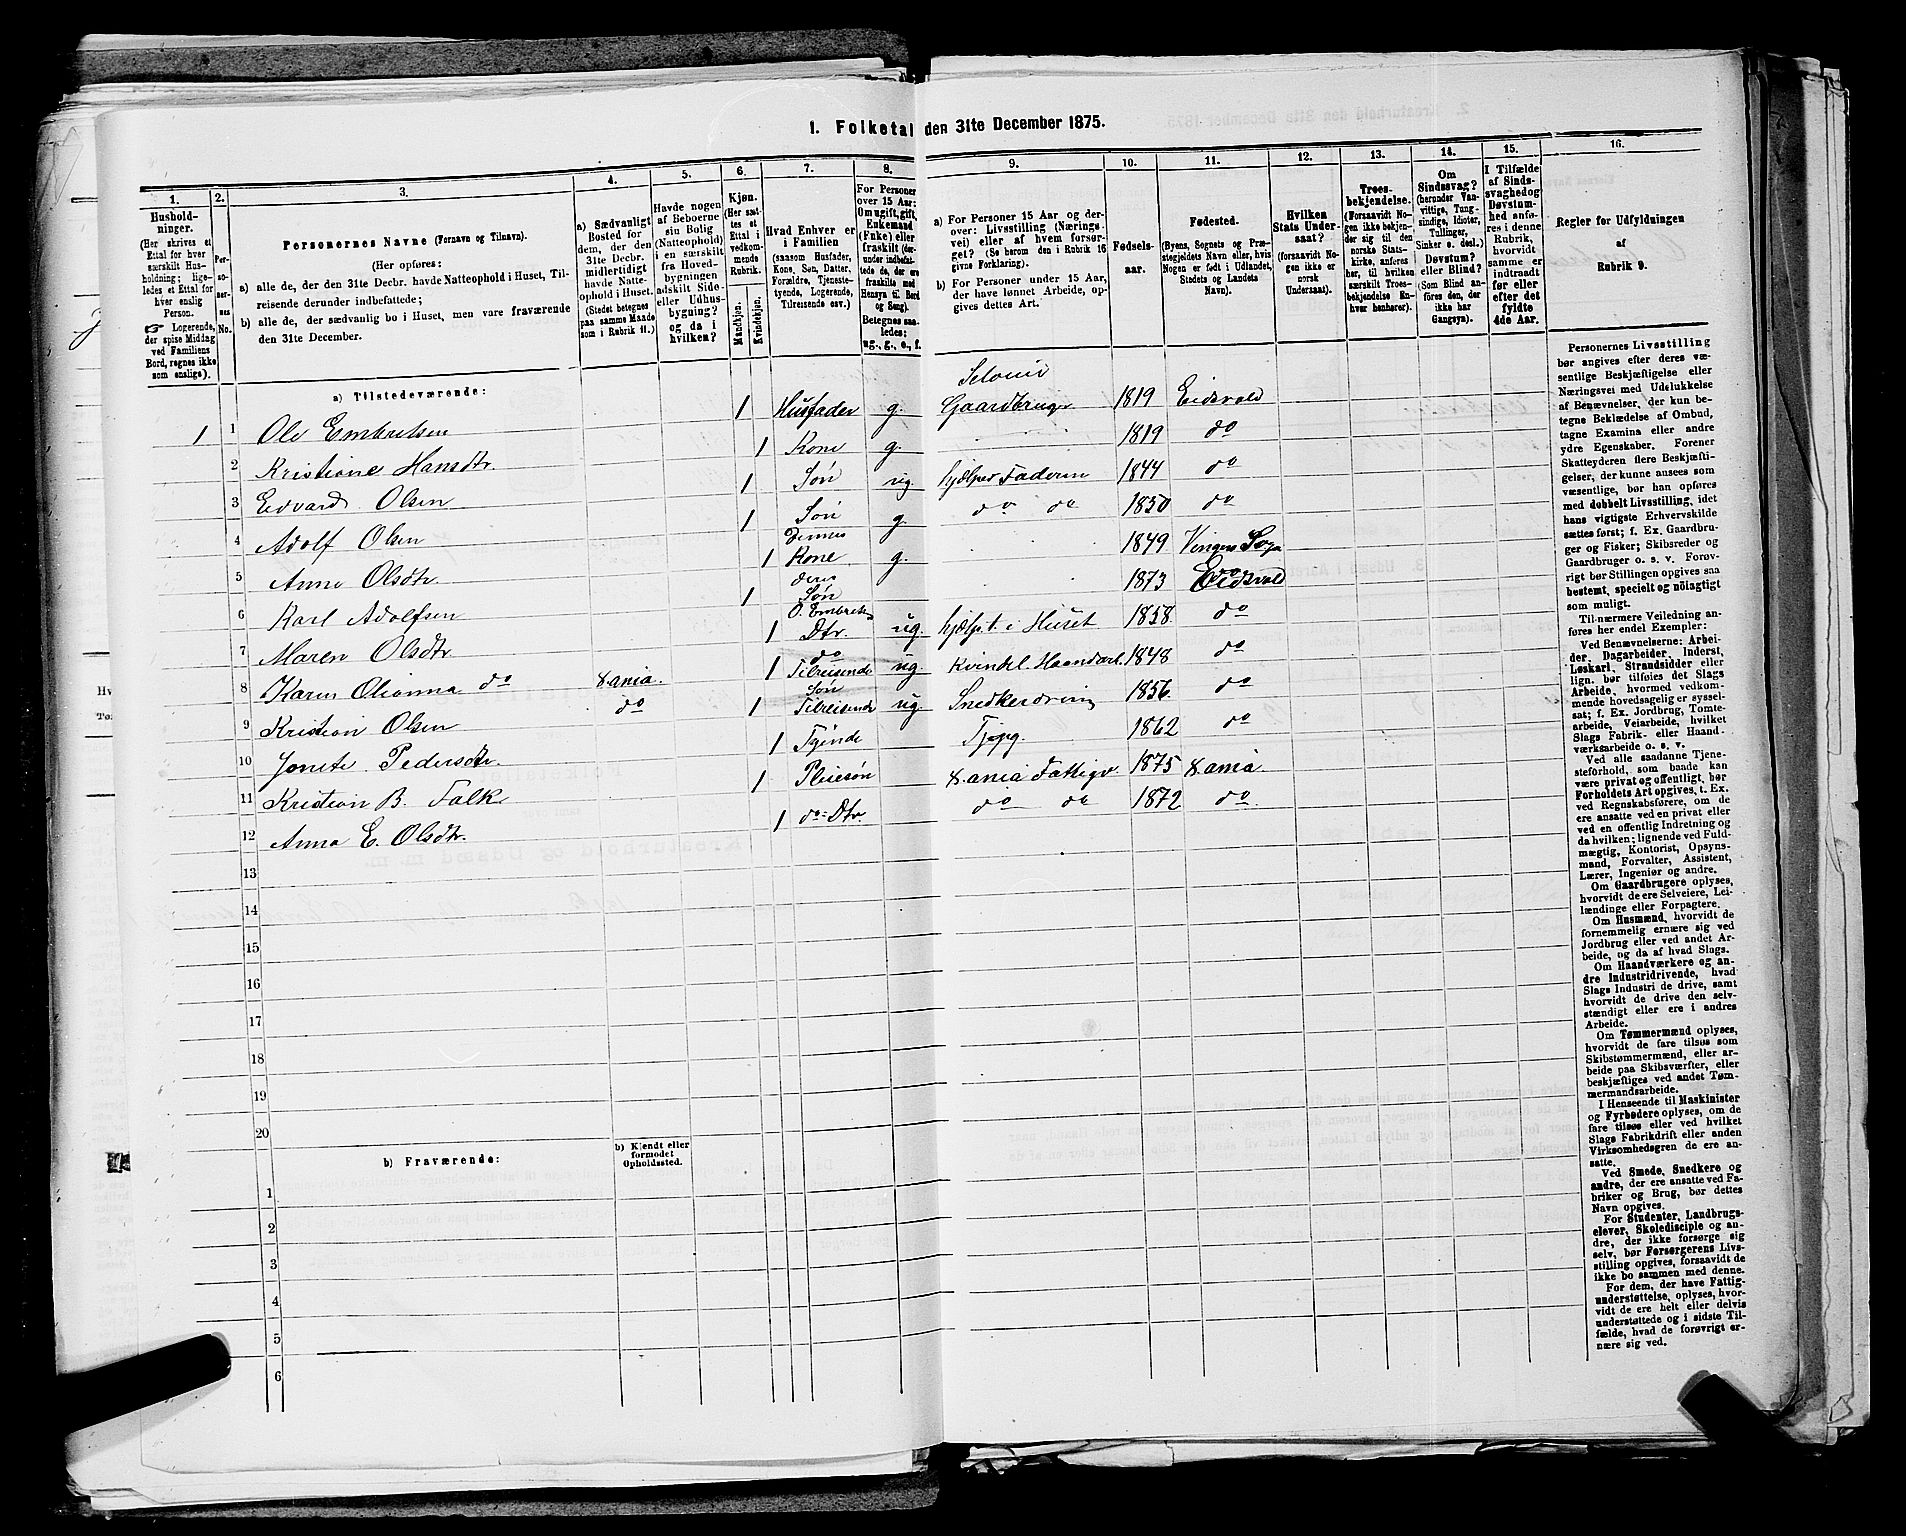 1. Folketal den 31te December 1875.
1. 2. 3. 4. 5. 6. 7. 8. 9. 10. 11. 12. 13. 14. 15. 16.
Hushold-
ninger.
(Her skrives et
Ettal for hver
særskilt Hus-
holdning; lige-
ledes et Ettal for
hver enslig
Person.
☞ Logerende,
der spise Middag
ved Familiens
Bord, regnes ikke
som enslige).
Per-
so-
ner-
nes
No.
Personernes Navne (Fornavn og Tilnavn).
(Her opføres:
a) alle de, der den 31te Decbr. havde Natteophold i Huset, Til-
reisende derunder indbefattede;
b) alle de, der sædvanlig bo i Huset, men vare fraværende
den 31te December.
a) Sædvanligt
Bosted for
dem, der den
31te Decbr.
midlertidigt
havde Natte-
ophold i Huset.
(Stedet betegnes
paa samme Maade
som i Rubrik 11.)
Havde nogen
af Beboerne
sin Bolig
(Natteophold)
i en særskilt
fra Hoved-
bygningen
adskilt Side-
eller Udhus-
bygning?
og da i
hvilken?
Kjøn.
(Her sæt-
tes et
Ettal i
vedkom-
mende
Rubrik.
Mandkjøn.
Kvindekjøn.
Hvad Enhver er
i Familien
(saasom Husfader,
Kone, Søn, Datter,
Forældre, Tjeneste-
tyende, Logerende,
Tilreisende osv.)
For Personer
over 15 Aar:
Om ugift, gift,
Enkemand
(Enke) eller
fraskilt (der-
under indbefat-
tede de, der ere
fraskilte med
Hensyn til Bord
og Seng).
Betegnes saa-
ledes:
ug., g., e., f.
a) For Personer 15 Aar og der-
over: Livsstilling (Nærings-
vei) eller af hvem forsør-
get? (Se herom den i Rubrik 16
givne Forklaring).
b) For Personer under 15 Aar,
der have lønnet Arbeide, op-
gives dettes Art.
Fødsels-
aar.
Fødested.
(Byens, Sognets og Præ-
stegjeldets Navn eller, hvis
Nogen er født i Udlandet,
Stedets og Landets
Navn).
Hvilken
Stats Under-
saat?
(forsaavidt No-
gen ikke er
norsk
Undersaat).
Troes-
bekjendelse.
(Forsaavidt No-
gen ikke bekjen-
der sig til den
norske Stats-
kirke, anføres
her, til hvilken
særskilt Troes-
bekjendelse En-
hver henhører).
Om
Sindssvag?
(herunder Van-
vittige, Tung-
sindige, Idioter,
Tullinger,
Sinker o. desl.)
Døvstum?
eller Blind?
(Som Blind an-
føres den, der
ikke har
Gangsyn).
I Tilfælde
af Sinds-
svaghed og
Døvstum-
hed anfø-
res i denne
Rubrik,
hvorvidt
samme er
indtraadt
før eller
efter det
fyldte
4de Aar.
Regler for Udfyldningen
af
Rubrik 9.
a) Tilstedeværende:
1 1 Ole Embretsen 1 Husfader g. Selveier Gaardbruger 1819 Eidsvold
2 Kristiane Hansdtr. 1 Kone g. 1819 do
3 Edvard Olsen 1 Søn ug. hjælper Faderen 1844 do
4 Adolf Olsen 1 Søn g. do do 1850 do
5 Anne Olsdtr 1 Dennes Kone g. 1849 Vinger Sogn
6 Karl Adolfsen 1 deres Søn 1873 Eidsvold
7 Maren Olsdtr 1 O. Embretsen Dtr. ug. hjælp. t. i Huset 1858 do
8 Karen Olianna do Xania. 1 do Tilreisende ug. Kvindel. Haandarb. 1848 do
9 Kristian Olsen do 1 Søn Tilreisende ug. Snedkerdreng 1856 do
10 Jonete Pedersdtr. 1 Tyende Tjpg. 1862 do
11 Kristian B. Falk 1 Pleiesøn Xania Fattigv 1875 Xania.
12 Anna E. Olsdtr. 1 do Dtr. do do 1872 do
13
14
15
16
17
18
19
20
b) Fraværende:
b) Kjendt eller
formodet
Opholdssted.
1
2
3
4
5
6
Personernes Livsstilling
bør angives efter deres væ-
sentlige Beskjæftigelse eller
Næringsvei med Udelukkelse
af Benævnelser, der kun be-
tegne Beklædelse af Ombud,
tagne Examina eller andre
ydre Egenskaber. Forener
Skatteyderen flere Beskjæfti-
gelser, der kunne ansees som
væsentlige, bør han opføres
med dobbelt Livsstilling, idet
hans vigtigste Erhvervskilde
sættes først; f. Ex. Gaardbru-
ger og Fisker; Skibsreder og
Gaardbruger o. s. v. Forøv-
rigt bør Stillingen opgives saa
bestemt, specielt og nöiagtigt
som muligt.
Til nærmere Veiledning an-
føres her endel Exempler:
Ved Benævnelserne: Arbei-
der, Dagarbeider, Inderst,
Løskarl, Strandsidder eller
lign. bør tilføies det Slags
Arbeide, hvormed vedkom-
mende hovedsagelig er syssel-
sat; f. Ex. Jordbrug, Tomte-
arbeide, Veiarbeide, hvilket
Slags Fabrik- eller Haand-
værksarbeide o. s. v.
Ved alle saadanne Tjene-
steforhold, som baade kan
være privat og offentligt, bør
Forholdets Art opgives, t. Ex.
ved Regnskabsførere, om de
ere ansatte ved en privat eller
ved en offentlig Indretning og
da hvilken; lignende ved Fuld-
mægtig, Kontorist, Opsyns-
mand, Forvalter, Assistent,
Lærer, Ingeniør og andre.
Om Gaardbrugere oplyses,
hvorvidt de ere Selveiere, Lei-
lændinge eller Forpagtere.
Om Husmænd, hvorvidt de
fornemmelig ernære sig ved
Jordbrug eller ved andet Ar-
beide, og da af hvad Slags.
Om Haandværkere og an-
dre Industridrivende, hvad
Slags Industri de drive, samt
hvorvidt de drive den selv-
stændigt eller ere i andres
Arbeide.
Om Tømmermænd oplyses,
hvorvidt de fare tilsøs som
Skibstømmermænd, eller ar-
beide paa Skibsværfter, eller
beskjæftiges ved andet Tøm-
mermandsarbeide.
I Henseende til Maskinister
og Fyrbødere oplyses, om de
fare tilsøs eller ved hvilket
Slags Fabrikdrift eller anden
Virksomhedsgren de ere an-
satte.
Ved Smede, Snedkere og
andre, der ere ansatte ved Fa-
briker og Brug, bør dettes
Navn opgives.
For Studenter, Landbrugs-
elever, Skoledisciple og an-
dre, der ikke forsørge sig
selv, bør Forsørgerens Livs-
stilling opgives, forsaavidt de
ikke bo sammen med denne.
For dem, der have Fattig-
understøttelse, oplyses, hvor-
vidt de ere helt eller delvis
understøttede og i sidste Til-
fælde, hvad de forøvrigt er-
nære sig ved.